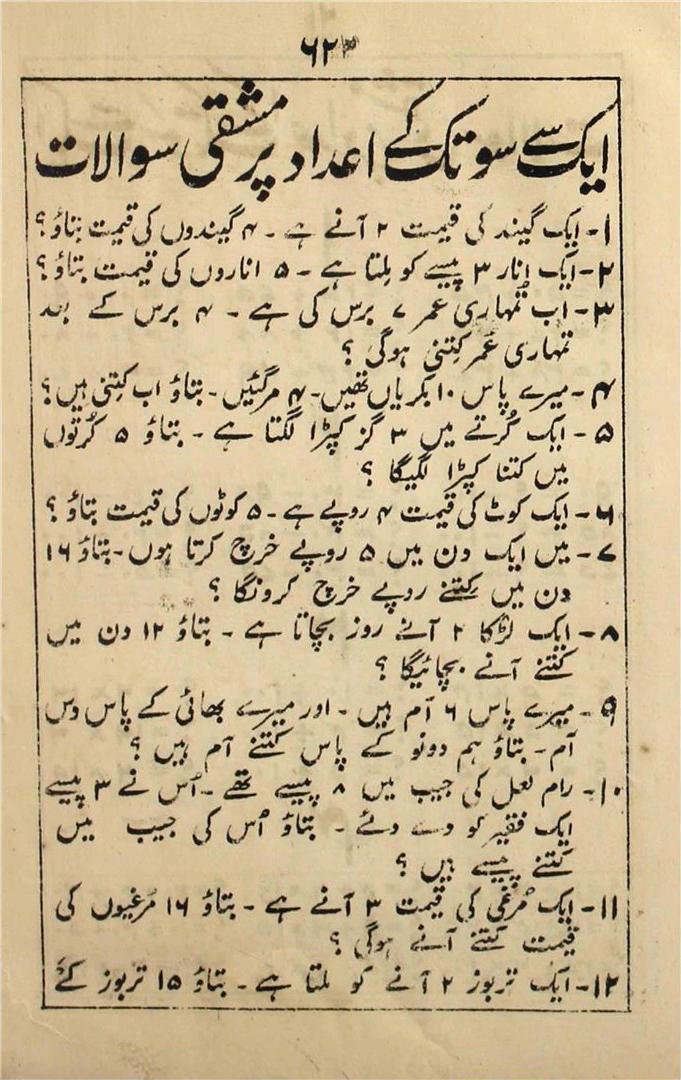 ۶۲
ایک سے سو تک کے اعداد پر مشقی سوالات
۱- ایک گیند کی قیمت ۲ آنے ہے - ۴ گیندوں کی قیمت بتاؤ؟
۲- ایک انار ۳ پیسے کو مِلتا ہے - ۵ اناروں کی قیمت بتاؤ؟
۳- اب تُمہاری عمر ۷ برس کی ہے - ۴ برس کے بعد
تمہاری عُمر کِتنی ہوگی ؟
۴- میرے پاس ۱۰ بکریاں تھیں - ۴ مرگئیں - بتاؤ اب کِتنی ہیں؟
۵- ایک کُرتے میں ۳ گز کپڑا لگتا ہے - بتاؤ ۵ کُرتوں
میں کتنا کپڑا لگیگا ؟
۶- ایک کوٹ کی قیمت ۴ روپے ہے - ۵ کوٹوں کی قیمت بتاؤ ؟
۷- میں ایک دن میں ۵ روپے خرچ کرتا ہوں - بتاؤ ۱۶
دن میں کِتنے روپے خرچ کرونگا ؟
۸- ایک لڑکا ۲ آنے روز بچاتا ہے - بتاؤ ۱۲ دن میں
کتنے آنے بچائیگا ؟
۹- میرے پاس ۶ آم ہیں - اور میرے بھائی کے پاس دس
آم - بتاؤ ہم دونو کے پاس کتنے آم ہیں ؟
۱۰- رام لعل کی جیب میں ۸ پیسے تھے - اُس نے ۳ پیسے
ایک فقیر کو دے دئے - بتاؤ اُس کی جیب میں
کتنے پیسے ہیں ؟
۱۱- ایک مُرغی کی قیمت ۳ آنے ہے - بتاؤ ۱۶ مُرغیوں کی
قیمت کتنے آنے ہوگی ؟
۱۲- ایک تربوز ۲ آنے کو ملتا ہے - بتاؤ ۱۵ تربوز کے